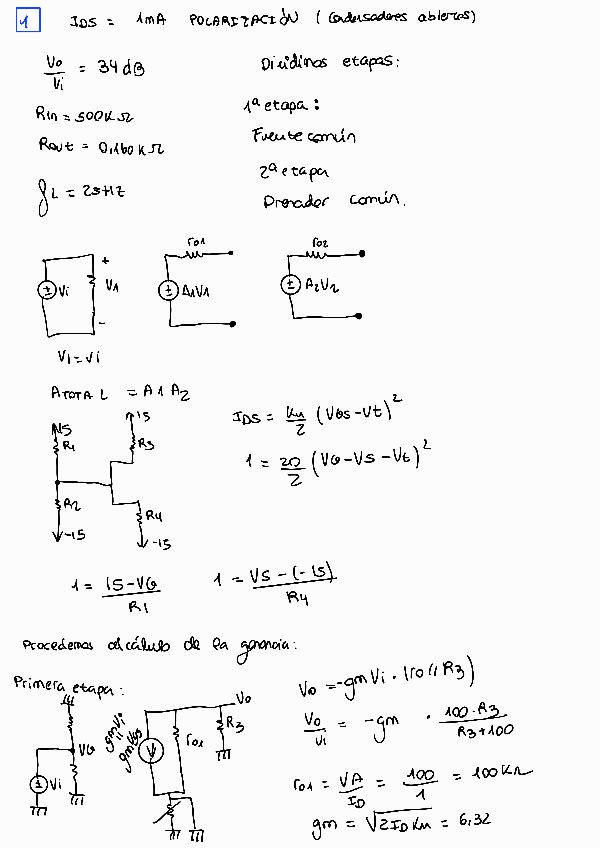 1 IDS = 1mA POLARIZACIÓN (Condensadores abiertos)
Vo/Vi = 34dB
Dividimos etapas:
1ª etapa:
Rin = 500KΩ
Fuente común
Rout = 0,160KΩ
2ª etapa
fL = 25Hz
Drenador común.
Vi + V1 -
ro1 A1V1
ro2 A2V2
V1 = Vi
ATOTAL = A1 A2
15 R1 R2 -15
15 R3 R4 -15
IDS = Kn/2 (VGS-Vt)²
1 = 20/2 (VG-VS-Vt)²
1 = 15-VG/R1
1 = VS-(-15)/R4
Procedemos al cálculo de la ganancia:
Primera etapa:
Vi VG
gmVi = gmVGS ro1 R3 Vo
Vo = -gmVi · (ro // R3)
Vo/Vi = -gm · 100·R3/R3+100
ro1 = VA/ID = 100/1 = 100KΩ
gm = √2IDKn = 6,32